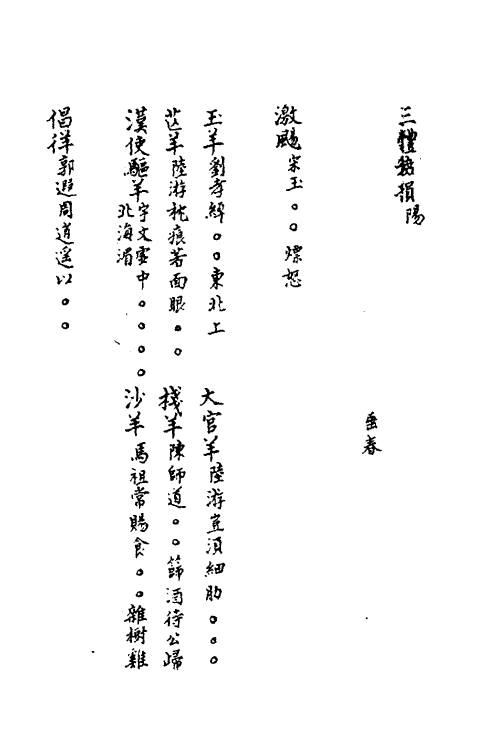 三體摭損陽
垂春
激颺宋玉。。熛怒
玉羊劉孝綽。。東北上
大官羊陸游豈須細肋。。。
苙羊陸游枕痕著面眼。。
棧羊陳師道。。篩酒待公歸
漢使驅羊宇文虛中。。。。北海湄
沙羊馬祖常賜食。。雜樹雞
倡徉郭遐周逍遙以。。